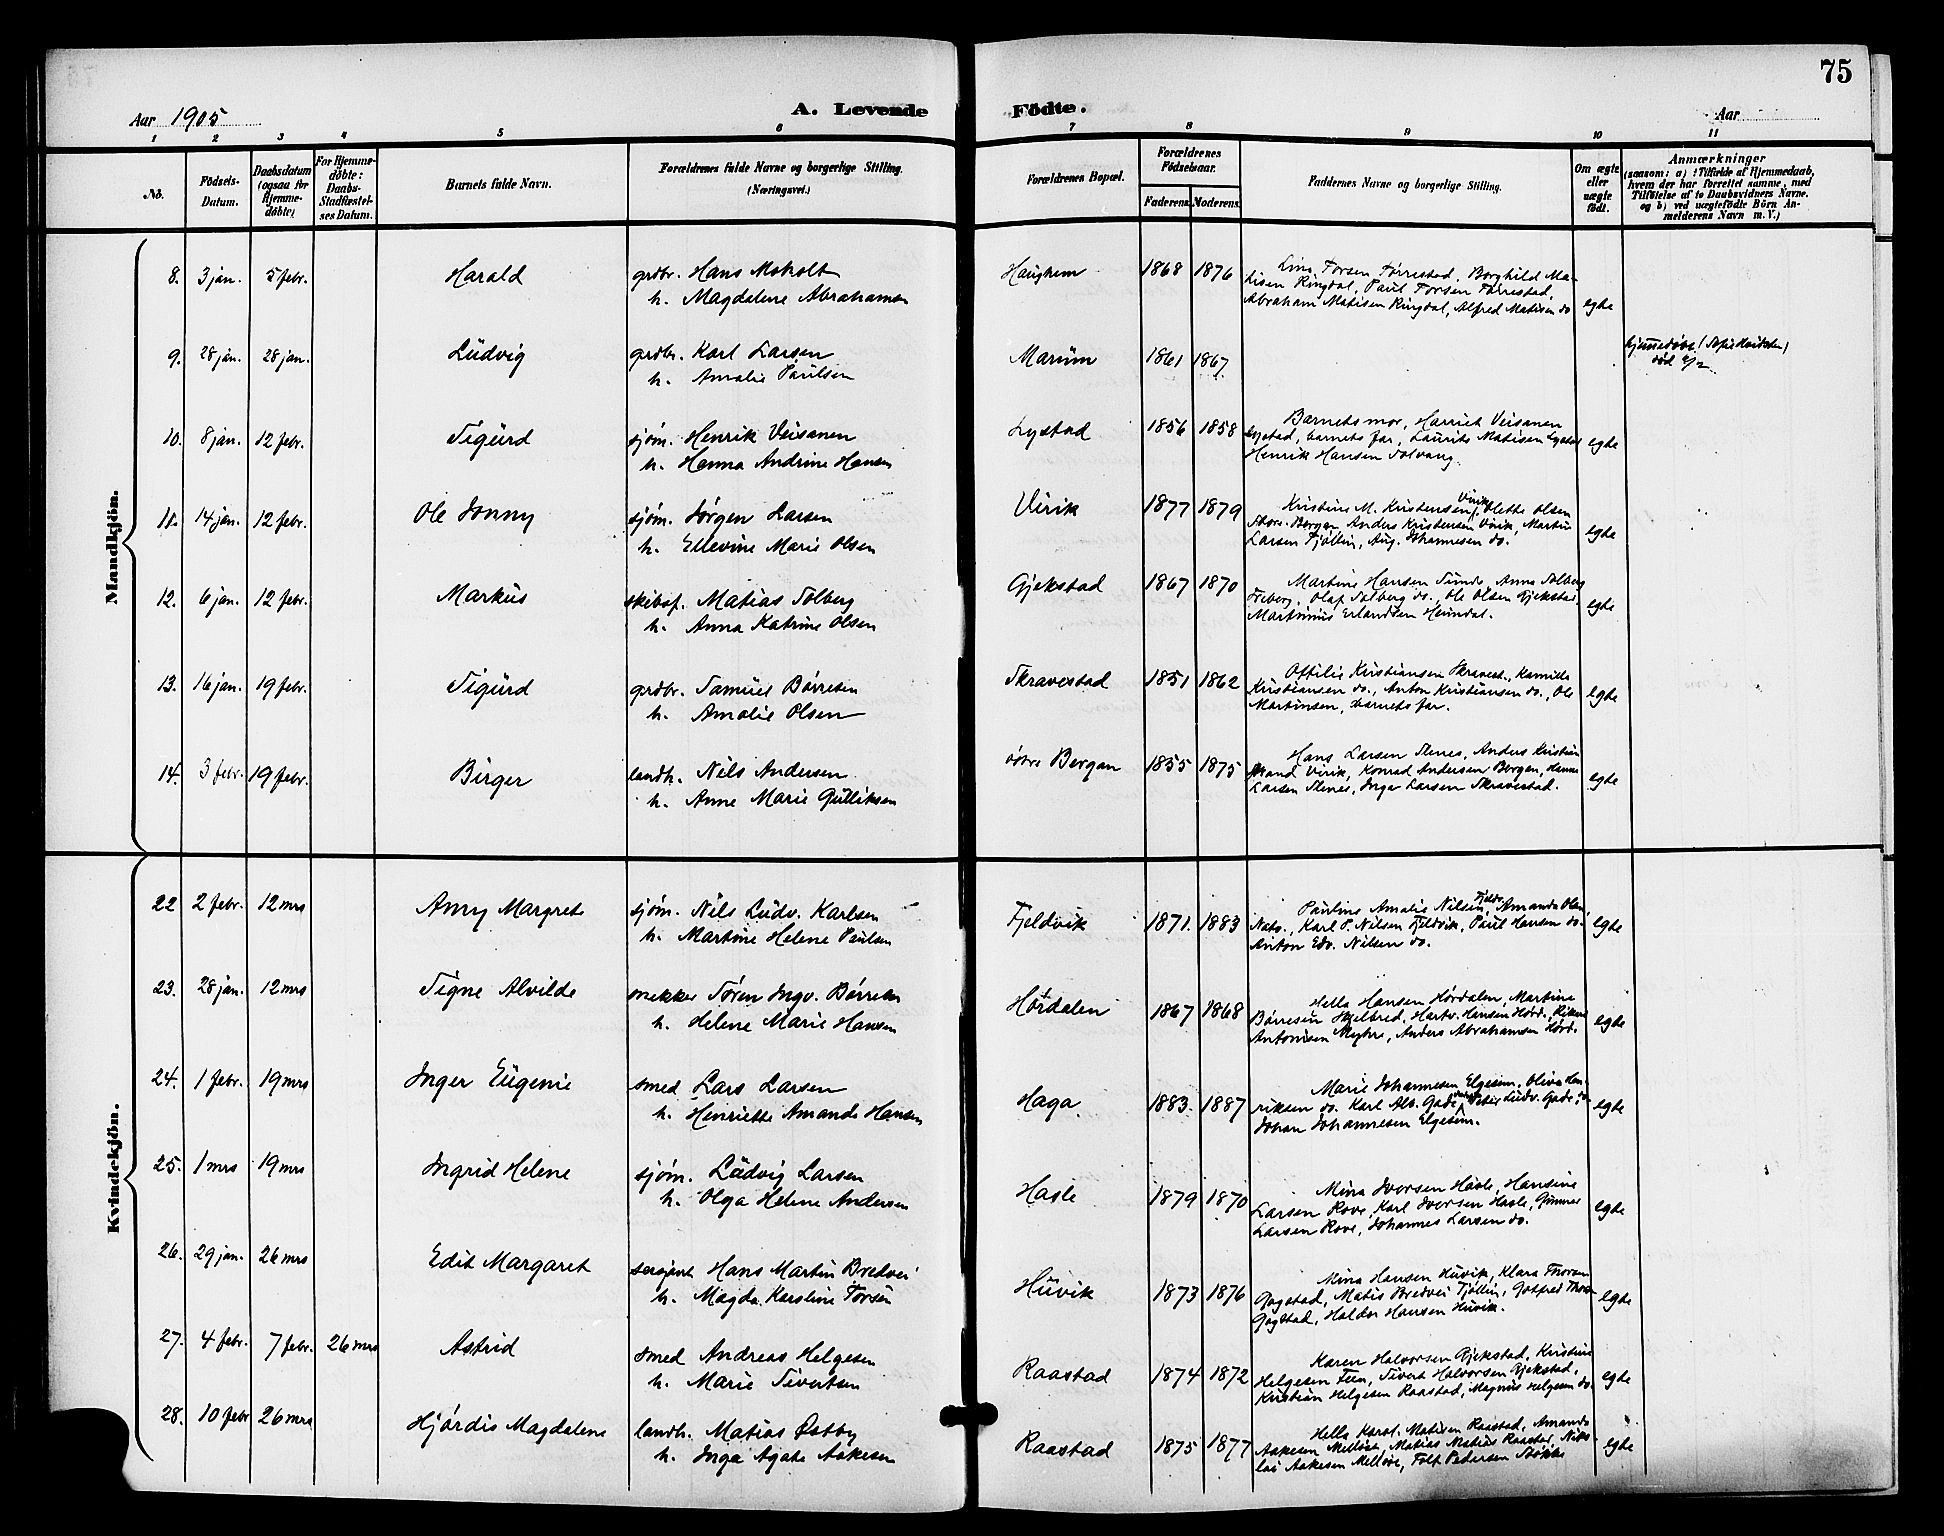 75
Aar 1905
A. Levende Födte.
Aar
1 2 3 4 5 6 7 8 9 10 11
No.
Födsels-Datum.
Daabsdatum (ogsaa for Hjemme-döbte)
For Hjemme-döbte: Daabs-Stadfæstel-ses Datum.
Barnets fulde Navn.
Forældrenes fulde Navne og borgerlige Stilling. (Næringsvei.)
Forældrenes Bopæl.
Forældrenes Födselsaar.
Faderens. Moderens.
Faddernes Navne og borgerlige Stilling.
Om ægte eller uægte födt.
Anmærkninger
(saasom: a) i Tilfælde af Hjemmedaab,
hvem der har forrettet samme, med
Tilföielse af to Daabsvidners Navne.
og b) ved uægtefödte Börn An-
melderens Navn m. V.)
Mandkjön.
8. 3 jan. 5 febr. Harald grdbr. Hans Moholt Haughem 1868 1876 Lina Torsen Førrestad, Borghild Ma-
h. Magdalene Abrahamsen tisen Ringdal, Paul Torsen Førrestad,
Abraham Matisen Ringdal, Alfred Matisen do egte
9. 28 jan. 28 jan. Ludvig grdbr. Karl Larsen Marum 1861 1867.
h. Amalie Paulsen
død
10. 8 jan. 12 febr. Sigurd sjøm. Henrik Veisanen Lystad 1856 1858 Barnets mor, Harriet Veisanen
h. Hanna Andrine Hansen Lystad, barnets far, Laurits Matisen Lystad egte
Henrik Hansen Solvang.
11. 14 jan. 12 febr. Ole Jonny sjøm. Jørgen Larsen Virik 1877 1879 Kristine M. Kristensen Virik, Olette Olsen
h. Ellevine Marie Olsen Bergan Anders Kristensen Virik, Martin
Larsen Tjølling, Aug. Johannesen do. egte
12. 6 jan. 12 febr. Markus skibsf. Matias Solberg Gjekstad 1867 1870 Martine Hansen Sunde, Anna Solberg
h. Anna Katrine Olsen Freberg, Olaf Solberg do., Ole Olsen Gjekstad, egte
Martinius Erlandsen Heimdal.
13. 16 jan. 19 febr. Sigurd grdbr. Samuel Børresen Skravestad 1851 1862 Ottilie Kristiansen Skravest., Kamilla
h. Amalie Olsen Kristiansen do., Anton Kristiansen do., Ole egte
Martinsen, barnets far.
14. 3 febr. 19 febr. Birger landh. Nils Andersen østre Bergan 1855 1875 Hans Larsen Stenes, Anders Kristian
h. Anne Marie Gulliksen Virik, Konrad Andersen Bergan, Hanna
Larsen Stenes, Inga Larsen Skravestad. egte
Kvindekjön.
22 2 febr. 12 mrs Anny Margrete sjøm. Nils Ludv. Karlsen Fjeldvik 1871. 1883 Pauline Amalie Nilsen Fjeldv. Amanda Olsen,
h. Martine Helene Paulsen Nats., Karl P. Nilsen Fjeldvik, Paul Hansen do. egte
Anton Edv. Nilsen do.
23. 28 jan. 12 mrs Signe Alvilde snekker Søren Ingv. Børresen Hørdalen 1867 1868 Hella Hansen Hørdalen, Martine
h. Helene Marie Hansen Børresen Skjelbred, Hartv. Hansen Hørd., Rikard egte
Antonisen Myhre, Anders Abrahamsen Hørd.
24. 1 febr. 19 mrs Inger Eugenie smed Lars Larsen Haga 1883. 1887 Marie Johannesen Elgesem, Oliva Hen-
h. Henriette Amanda Hansen riksen do. Karl Alb. Gade, Peter Ludv. Gade, do egte
Johan Johannesen Elgesem.
25. 1 mrs 19 mrs Ingrid Helene sjøm. Ludvig Larsen Hasle 1879 1870 Mina Iversen Hasle, Hansine
h. Olga Helene Andersen Larsen Rove, Karl Iversen Hasle, Gunner egte
Larsen Rove, Johannes Larsen do.
26. 29 jan. 26 mrs Edit Margaret sersjant Hans Martin Bredvei Huvik 1873 1876 Mina Hansen Huvik, Klara Thorsen
h. Magda Karoline Torsen Gogstad, Matis Bredvei Tjølling, Gotfred Thorsen egte
Gogstad, Haldor Hansen Huvik.
27. 4 febr. 7 febr. 26 mrs Astrid smed Andreas Helgesen Raastad 1874 1872 Karen Halvorsen Gjekstad, Kristine
h. Marie Sivertsen Helgesen Feen, Sivert Halvorsen Gjekstad, egte
Kristian Helgesen Raastad, Magnus Helgesen do.
28. 10 febr 26 mrs Hjørdis Magdalene landh. Matias Østby Raastad 1875 1877 Hella Karol. Matisen Raastad, Amanda
h. Inga Agate Aakesen Aakesen Melløse, Matias Matisen Raastad, Niko- egte
lai Aakesen Melløse, Pedersen Stokke